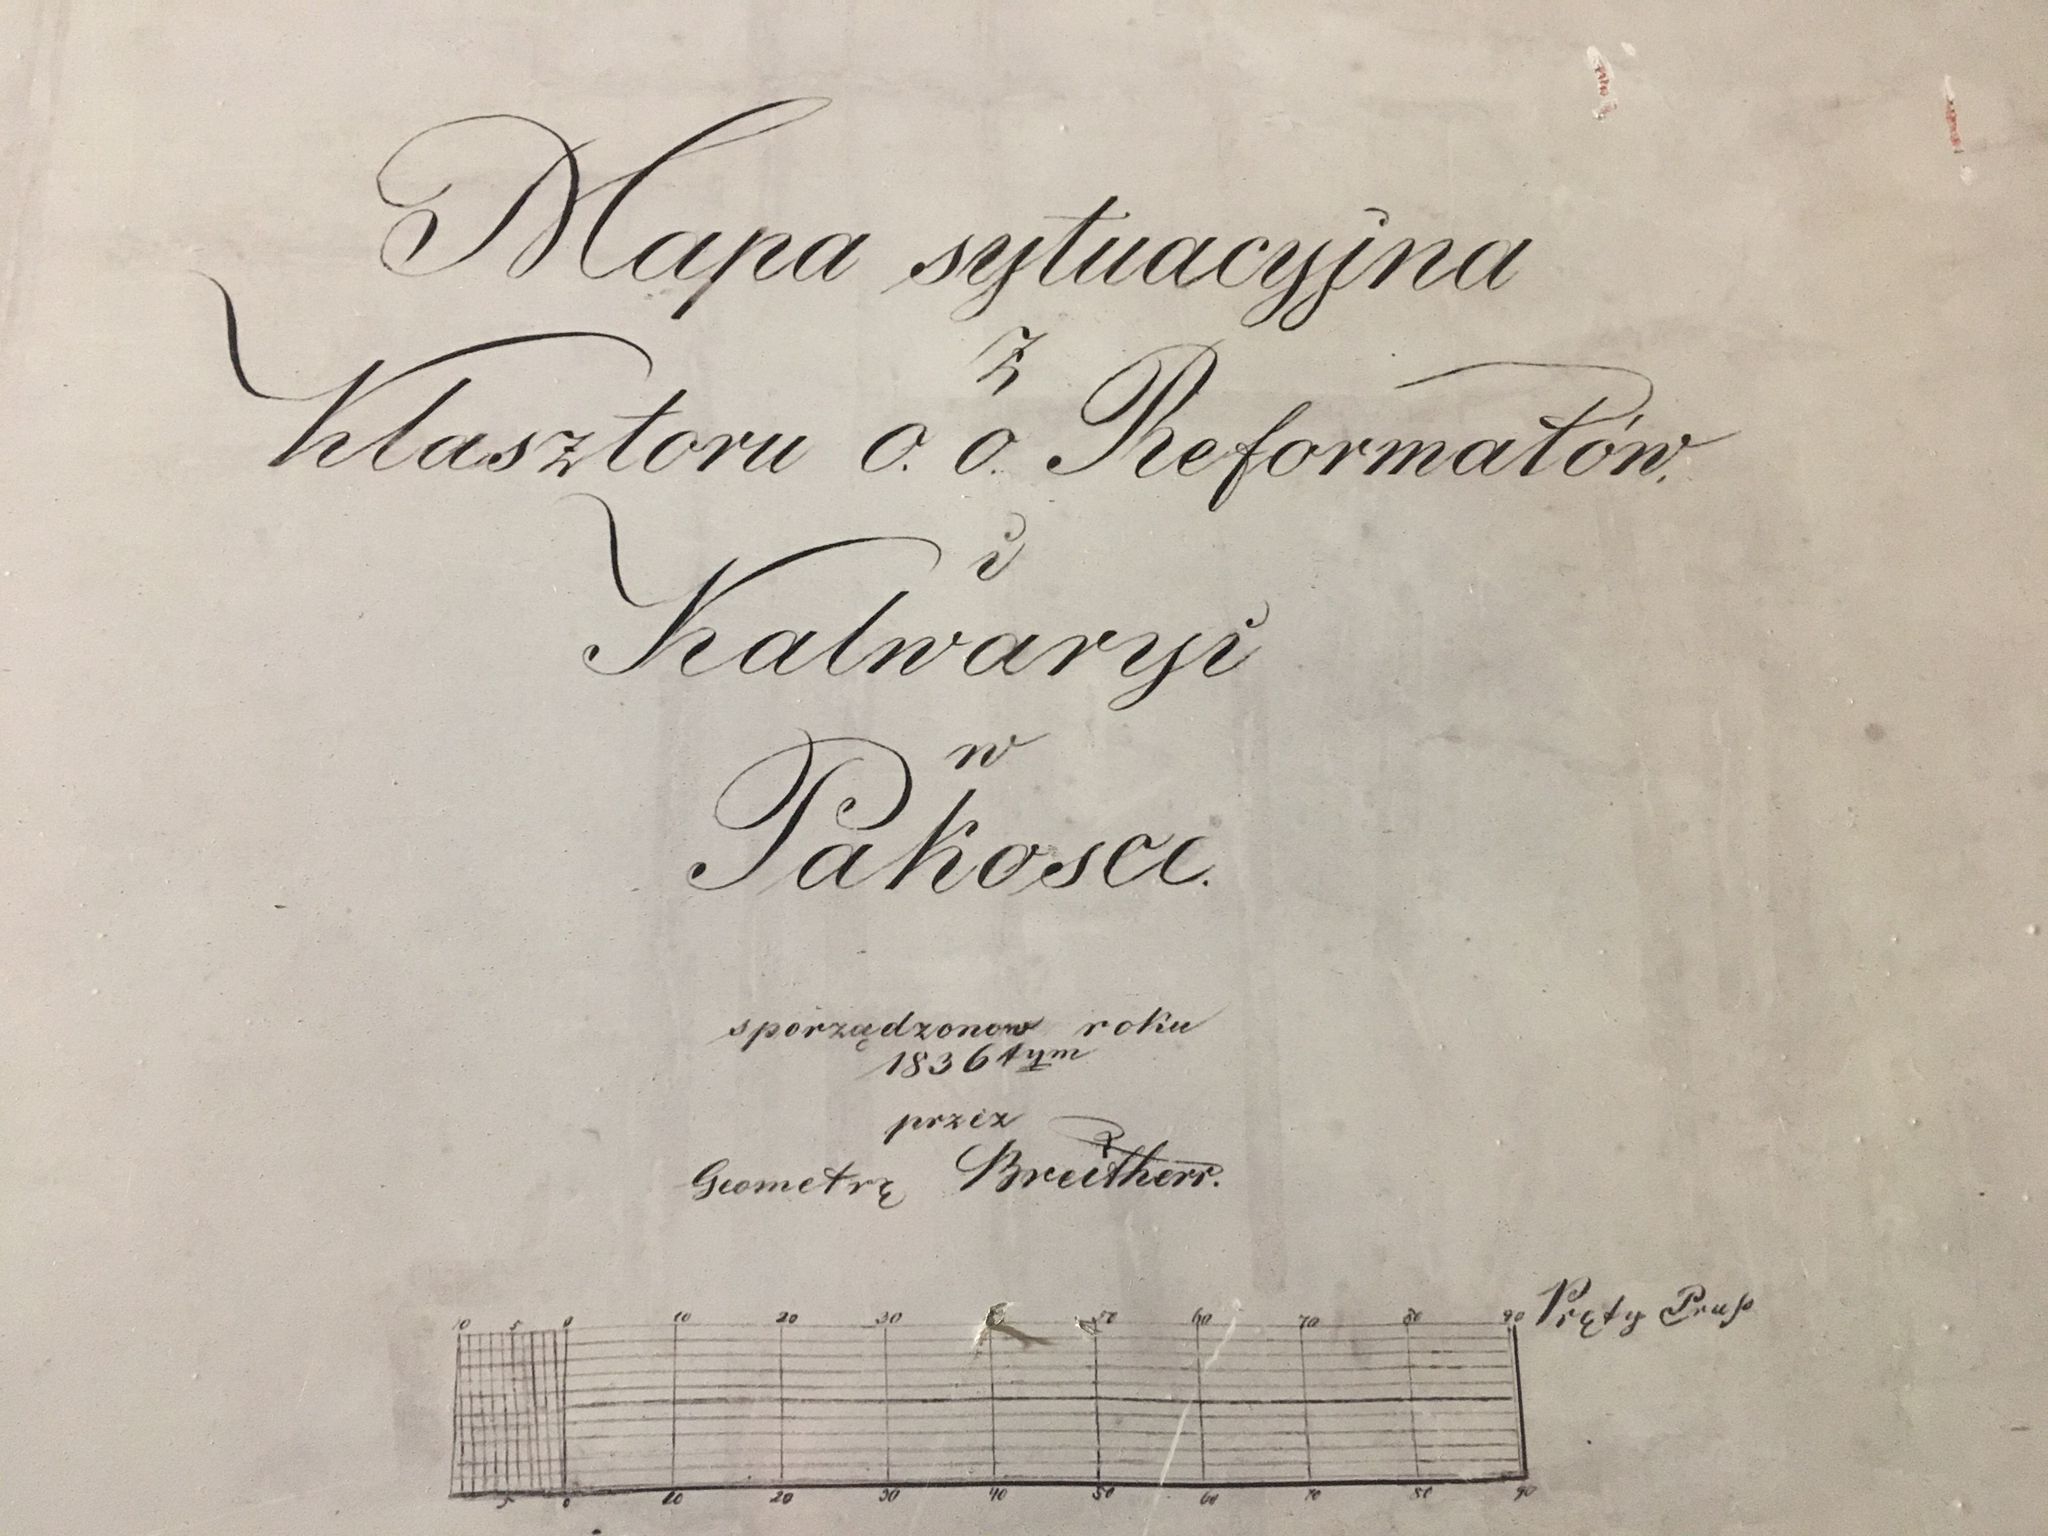 Mapa sytuacyjna
z
Klasztoru o. o. Reformatów.
i
Kalwaryi
w
Pakosci.
sporządzonow roku
1836 tym
przez
Geometrę Breitherr.
10 5 0 10 20 30 50 60 70 80 90 Pręty Prus
5 0 10 20 30 40 50 60 70 80 90